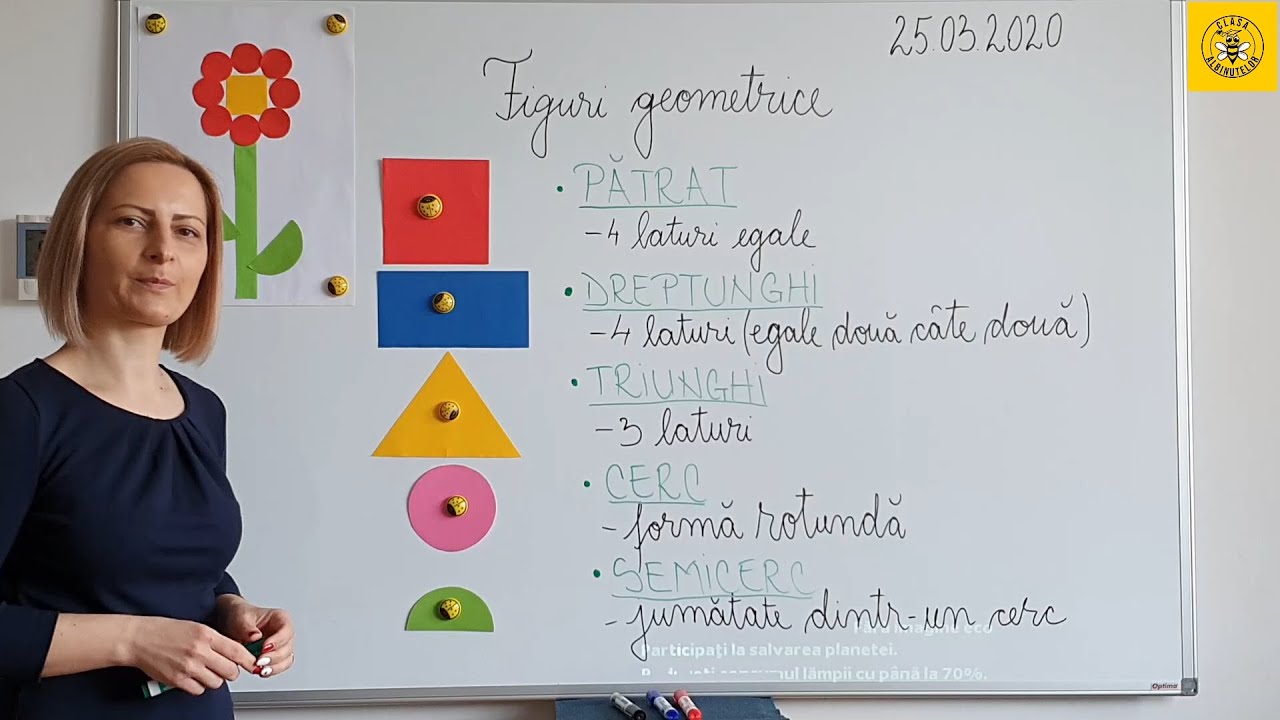 25.03.2020
CLASA
ALBINUTELOR
Figuri geometrice
• PĂTRAT
- 4 laturi egale
• DREPTUNGHI
- 4 laturi (egale două câte două)
• TRIUNGHI
- 3 laturi
• CERC
- formă rotundă
• SEMICERC
- jumătate dintr-un cerc
imagine eco
Participați la salvarea planetei.
consumul lămpii cu până la 70%.
Optima